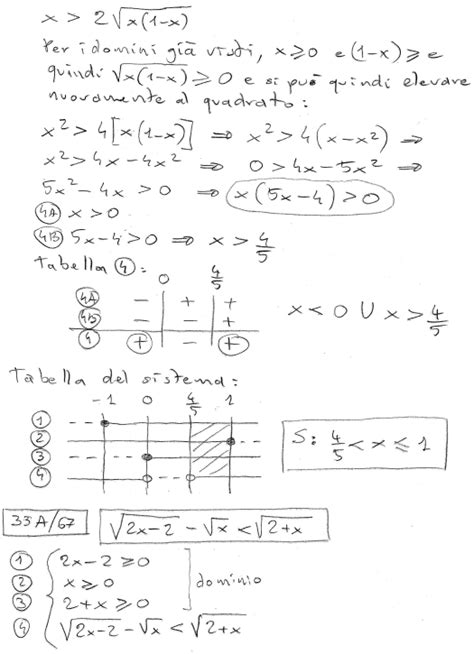 x > 2√x(1-x)
Per i domini già visti, x≥0 e (1-x)≥ e
quindi √x(1-x) ≥ 0 e si può quindi elevare
nuovamente al quadrato:
x² > 4[x(1-x)] ⇒ x² > 4(x-x²) ⇒
x² > 4x-4x² ⇒ 0 > 4x-5x² ⇒
5x²-4x > 0 ⇒ x(5x-4) > 0
4A x > 0
4B 5x-4 > 0 ⇒ x > 4/5
Tabella 4:
0 4/5
4A - + +
4B - - +
4 + - +
x < 0 ∪ x > 4/5
Tabella del sistema:
-1 0 4/5 1
1
2
3
4
S: 4/5 < x ≤ 1
33A/67 √2x-2 - √x < √2+x
1 2x-2 ≥ 0
2 x ≥ 0
3 2+x ≥ 0
dominio
4 √2x-2 - √x < √2+x